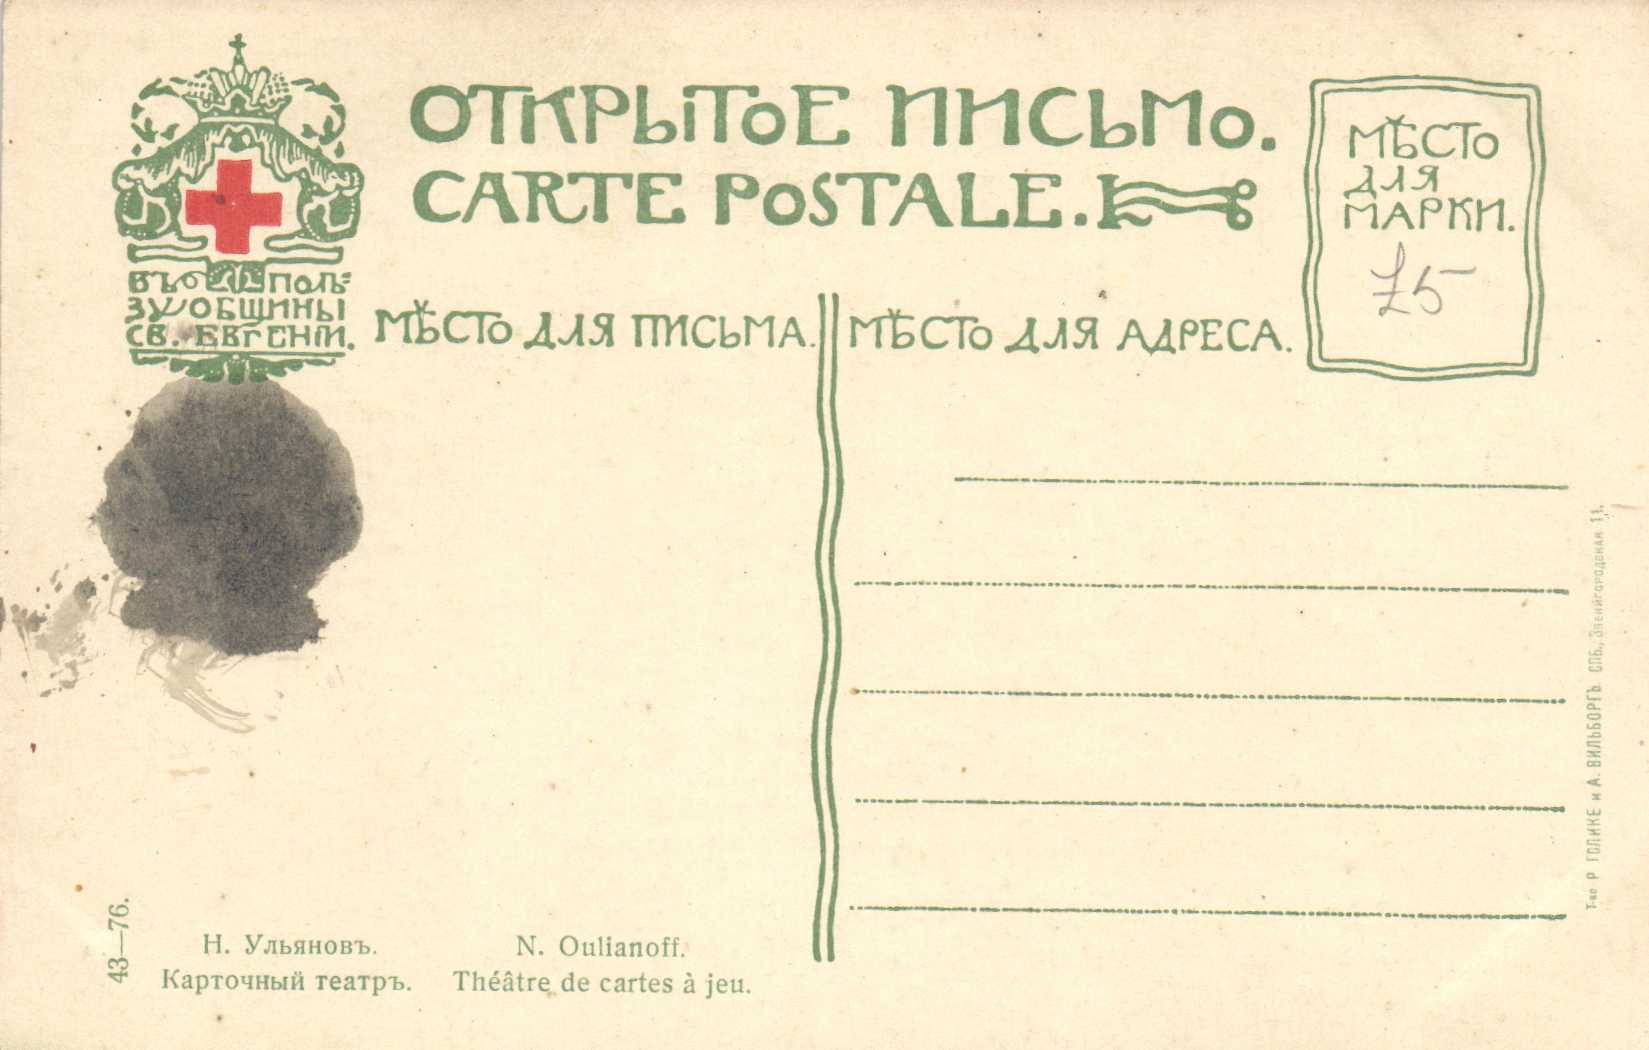 ОТКРЫТОЕ ПИСЬМО.
CARTE POSTALE.
МѢСТО
ДЛЯ
МАРКИ.
£5
ВЪ ПОЛЬ-
ЗУ ОБЩИНЫ
СВ. ЕВГЕНІИ.
МѢСТО ДЛЯ ПИСЬМА.
МѢСТО ДЛЯ АДРЕСА.
43—76.
Н. Ульяновъ.
Карточный театръ.
N. Oulianoff.
Théâtre de cartes à jeu.
Т-во Р. ГОЛИКЕ и А. ВИЛЬБОРГЪ. СПБ., Звенигородская 11.